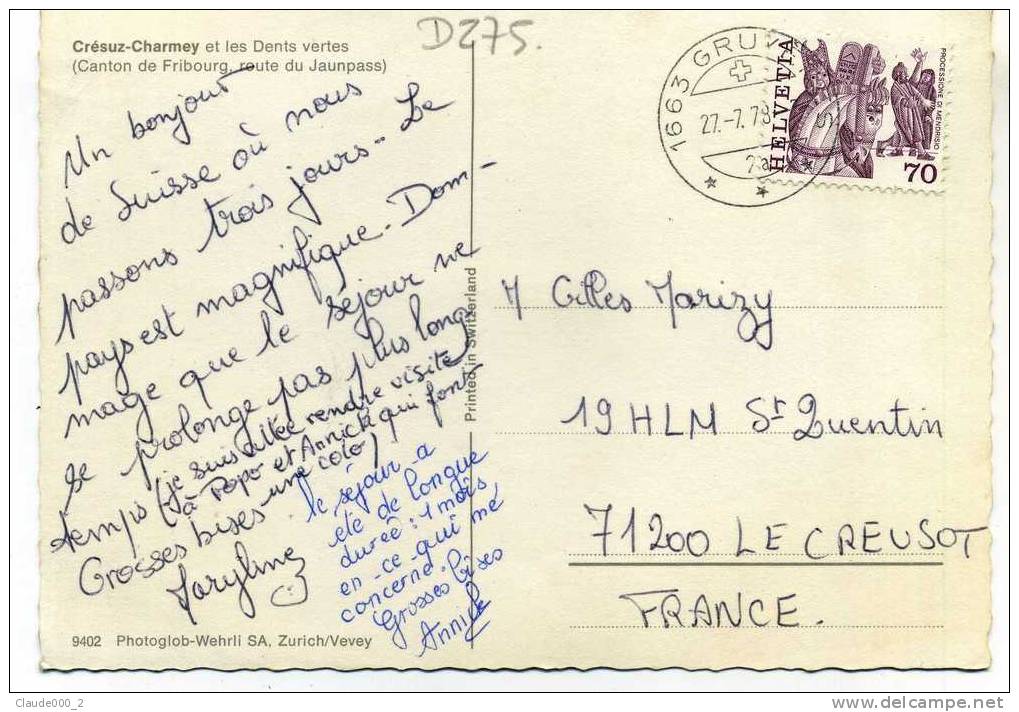 D275.
Crésuz-Charmey et les Dents vertes
(Canton de Fribourg, route du Jaunpass)
Un bonjour
de Suisse où nous
passons trois jours - Le
pays est magnifique - Dom-
mage que le séjour ne
se prolonge pas plus long
temps (je suis allée rendre visite
à Popo et Annick qui font
une colo)
Grosses bises
Maryline
le séjour a
été de longue
durée : 1 mois,
en ce qui me
concerne.
Grosses bises
Annick
Printed in Switzerland
1663 GRU
27.-7.78
HELVETIA
PROCESSIONE DI MENDRISIO
70
M Gilles Marizy
19 HLM St Quentin
71200 LE CREUSOT
FRANCE.
9402 Photoglob-Wehrli SA, Zurich/Vevey
Claude000_2
delcampe.net